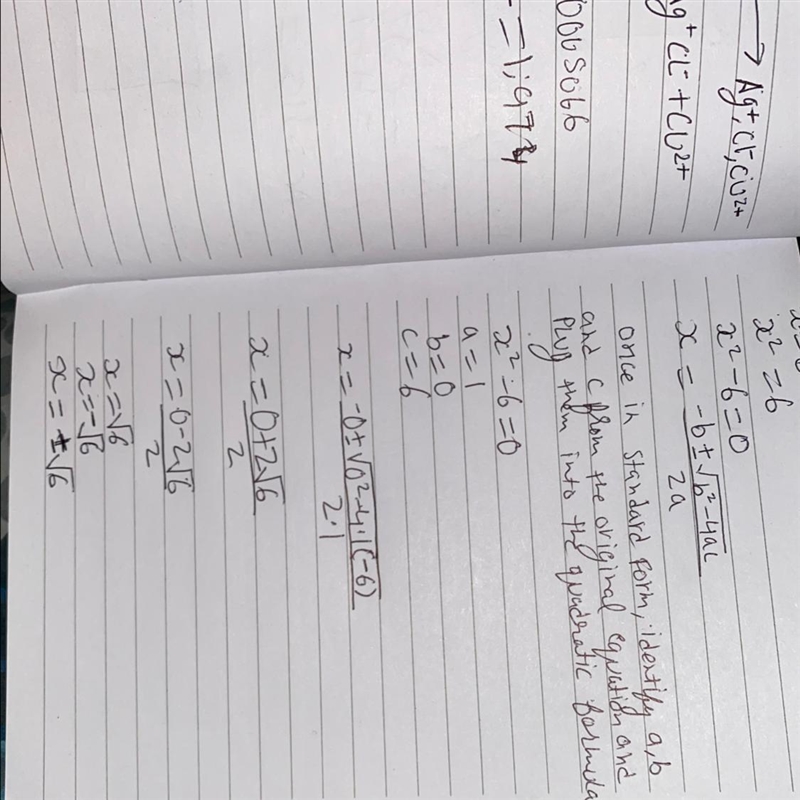 → Ag⁺, Cl⁻, Cu²⁺
Ag⁺ Cl⁻ + Cu²⁺
0065066
= 1,973
x² = 6
x² - 6 = 0
x = -b ± √b² - 4ac / 2a
once in standard form, identify a, b
and c from the original equation and
plug them into the quadratic formula
x² - 6 = 0
a = 1
b = 0
c = 6
x = -0 ± √0² - 4·1(-6) / 2·1
x = 0 + 2√6 / 2
x = 0 - 2√6 / 2
x = √6
x = -√6
x = ±√6